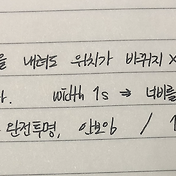 을 내려도 위치가 바뀌지 X
다. width 1s → 너비를
단전투명, 안보임 / 1